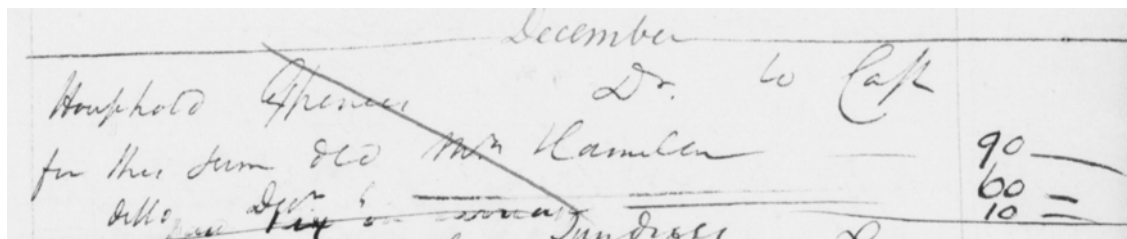 December
Household Expences Dr. to Cash
for this sum ded Mrs Hamilton 90
ditto Decr 60
10
Sundress